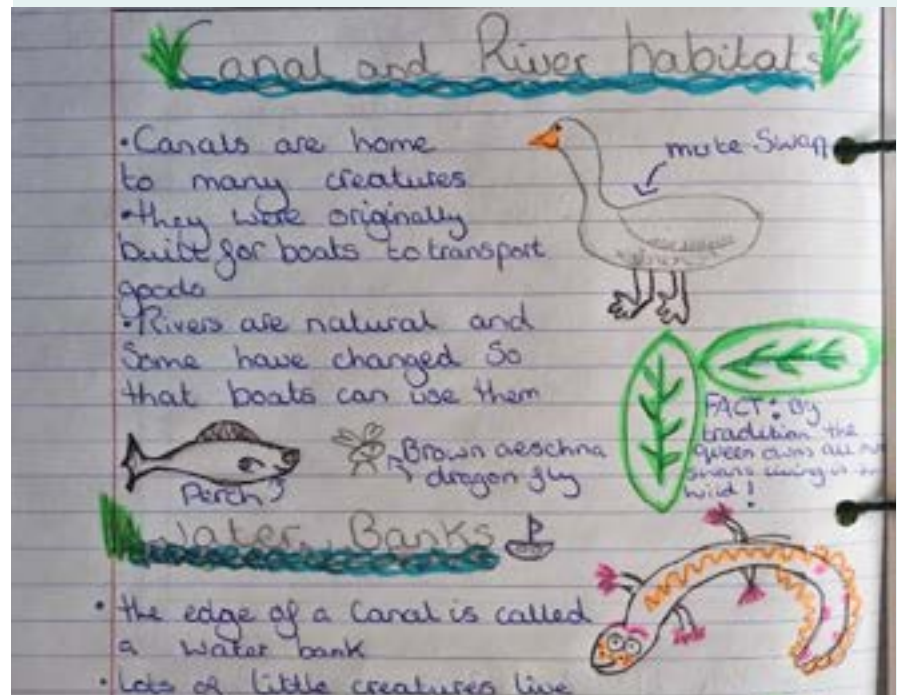 Canal and River habitats
•Canals are home
to many creatures
•they were originally
built for boats to transport
goods
•Rivers are natural and
Some have changed So
that boats can use them
mute Swan
FACT: By
tradition the
queen owns all
swans living in
wild!
Perch
Brown aeschna
dragon fly
Water Banks
• the edge of a Canal is called
a water bank
• Lots of little creatures live